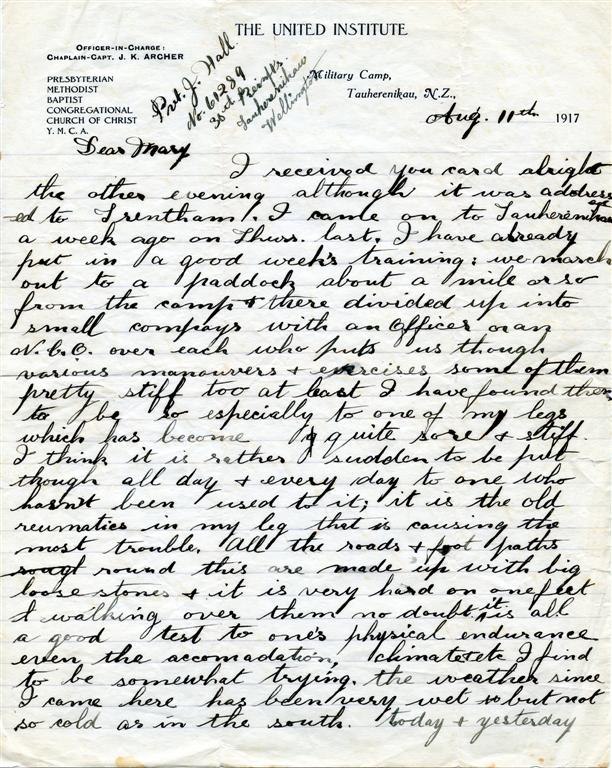 THE UNITED INSTITUTE
OFFICER-IN-CHARGE:
CHAPLAIN-CAPT. J. K. ARCHER
PRESBYTERIAN
METHODIST
BAPTIST
CONGREGATIONAL
CHURCH OF CHRIST
Y. M. C. A.
Pvt. J. Hall.
No. 61289
30rd Reinfts.
Tauherenikau
Wellington
Military Camp,
Tauherenikau, N.Z.,
Aug. 11th 1917
Dear Mary
I received you card alright
the other evening although it was address
-ed to Trentham. I came on to Tauherenikau
a week ago on Thurs. last. I have already
put in a good week's training; we march
out to a paddock about a mile or so
from the camp & there divided up into
small compays with an Officer or an
N.C.O. over each who puts us though
various manouvers & exercises some of them
pretty stiff too at least I have found them
to be so especially to one of my legs
which has become quite sore & stiff.
I think it is rather sudden to be put
though all day & every day to one who
hasn't been used to it; it is the old
reumatics in my leg that is causing the
most trouble. All the roads & foot paths
round this are made up with big
loose stones & it is very hard on one feet
walking over them no doubt it is all
a good test to one's physical endurance
even the accomadation, climate etc I find
to be somewhat trying. the weather since
I came here has been very wet but not
so cold as in the south. today & yesterday